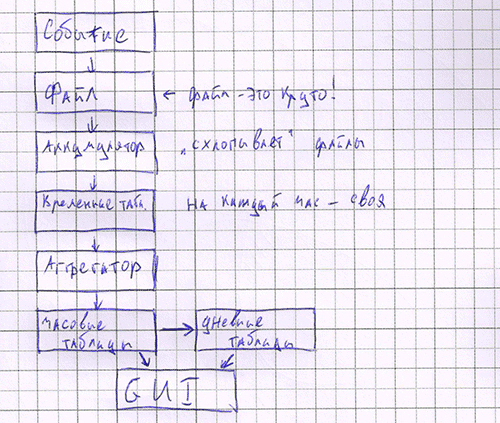 Событие
Файл ← файл - это круто!
Аккумулятор „схлопывает" файлы
Временные табл на каждый час - своя
Аггрегатор
часовые таблицы → дневные таблицы
GUI